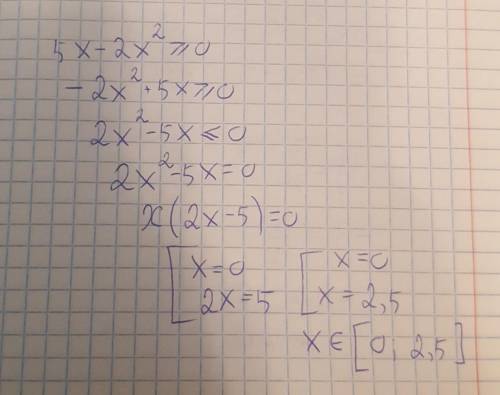 5x - 2x² ≥ 0
- 2x² + 5x ≥ 0
2x² - 5x ≤ 0
2x² - 5x = 0
x(2x - 5) = 0
[ x = 0 [ x = 0
2x = 5 x = 2,5
x ∈ [0; 2,5]